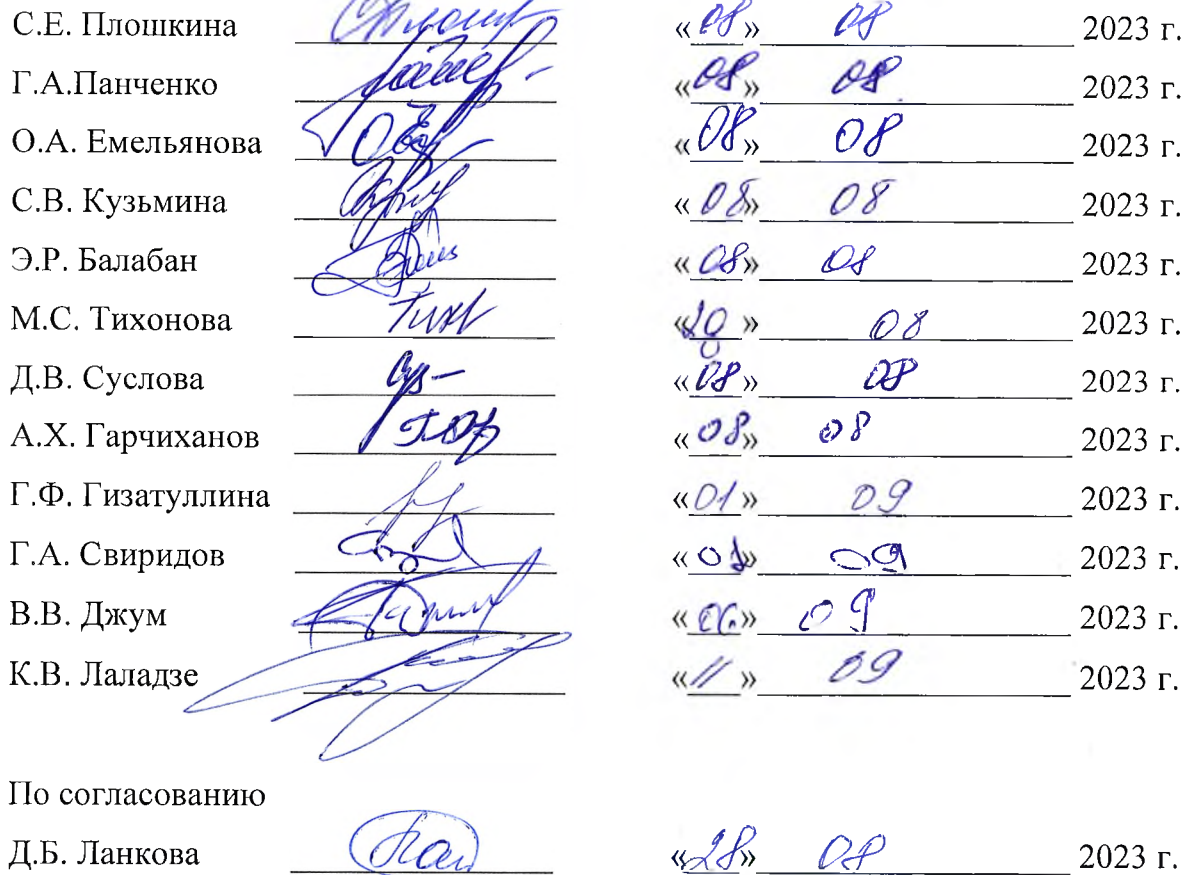 С.Е. Плошкина «08» 08 2023 г.
Г.А.Панченко «08» 08 2023 г.
О.А. Емельянова «08» 08 2023 г.
С.В. Кузьмина «08» 08 2023 г.
Э.Р. Балабан «08» 08 2023 г.
М.С. Тихонова Тихт « » 08 2023 г.
Д.В. Суслова «08» 08 2023 г.
А.Х. Гарчиханов «08» 08 2023 г.
Г.Ф. Гизатуллина «01» 09 2023 г.
Г.А. Свиридов « » 09 2023 г.
В.В. Джум «06» 09 2023 г.
К.В. Лаладзе «11» 09 2023 г.
По согласованию
Д.Б. Ланкова «28» 08 2023 г.